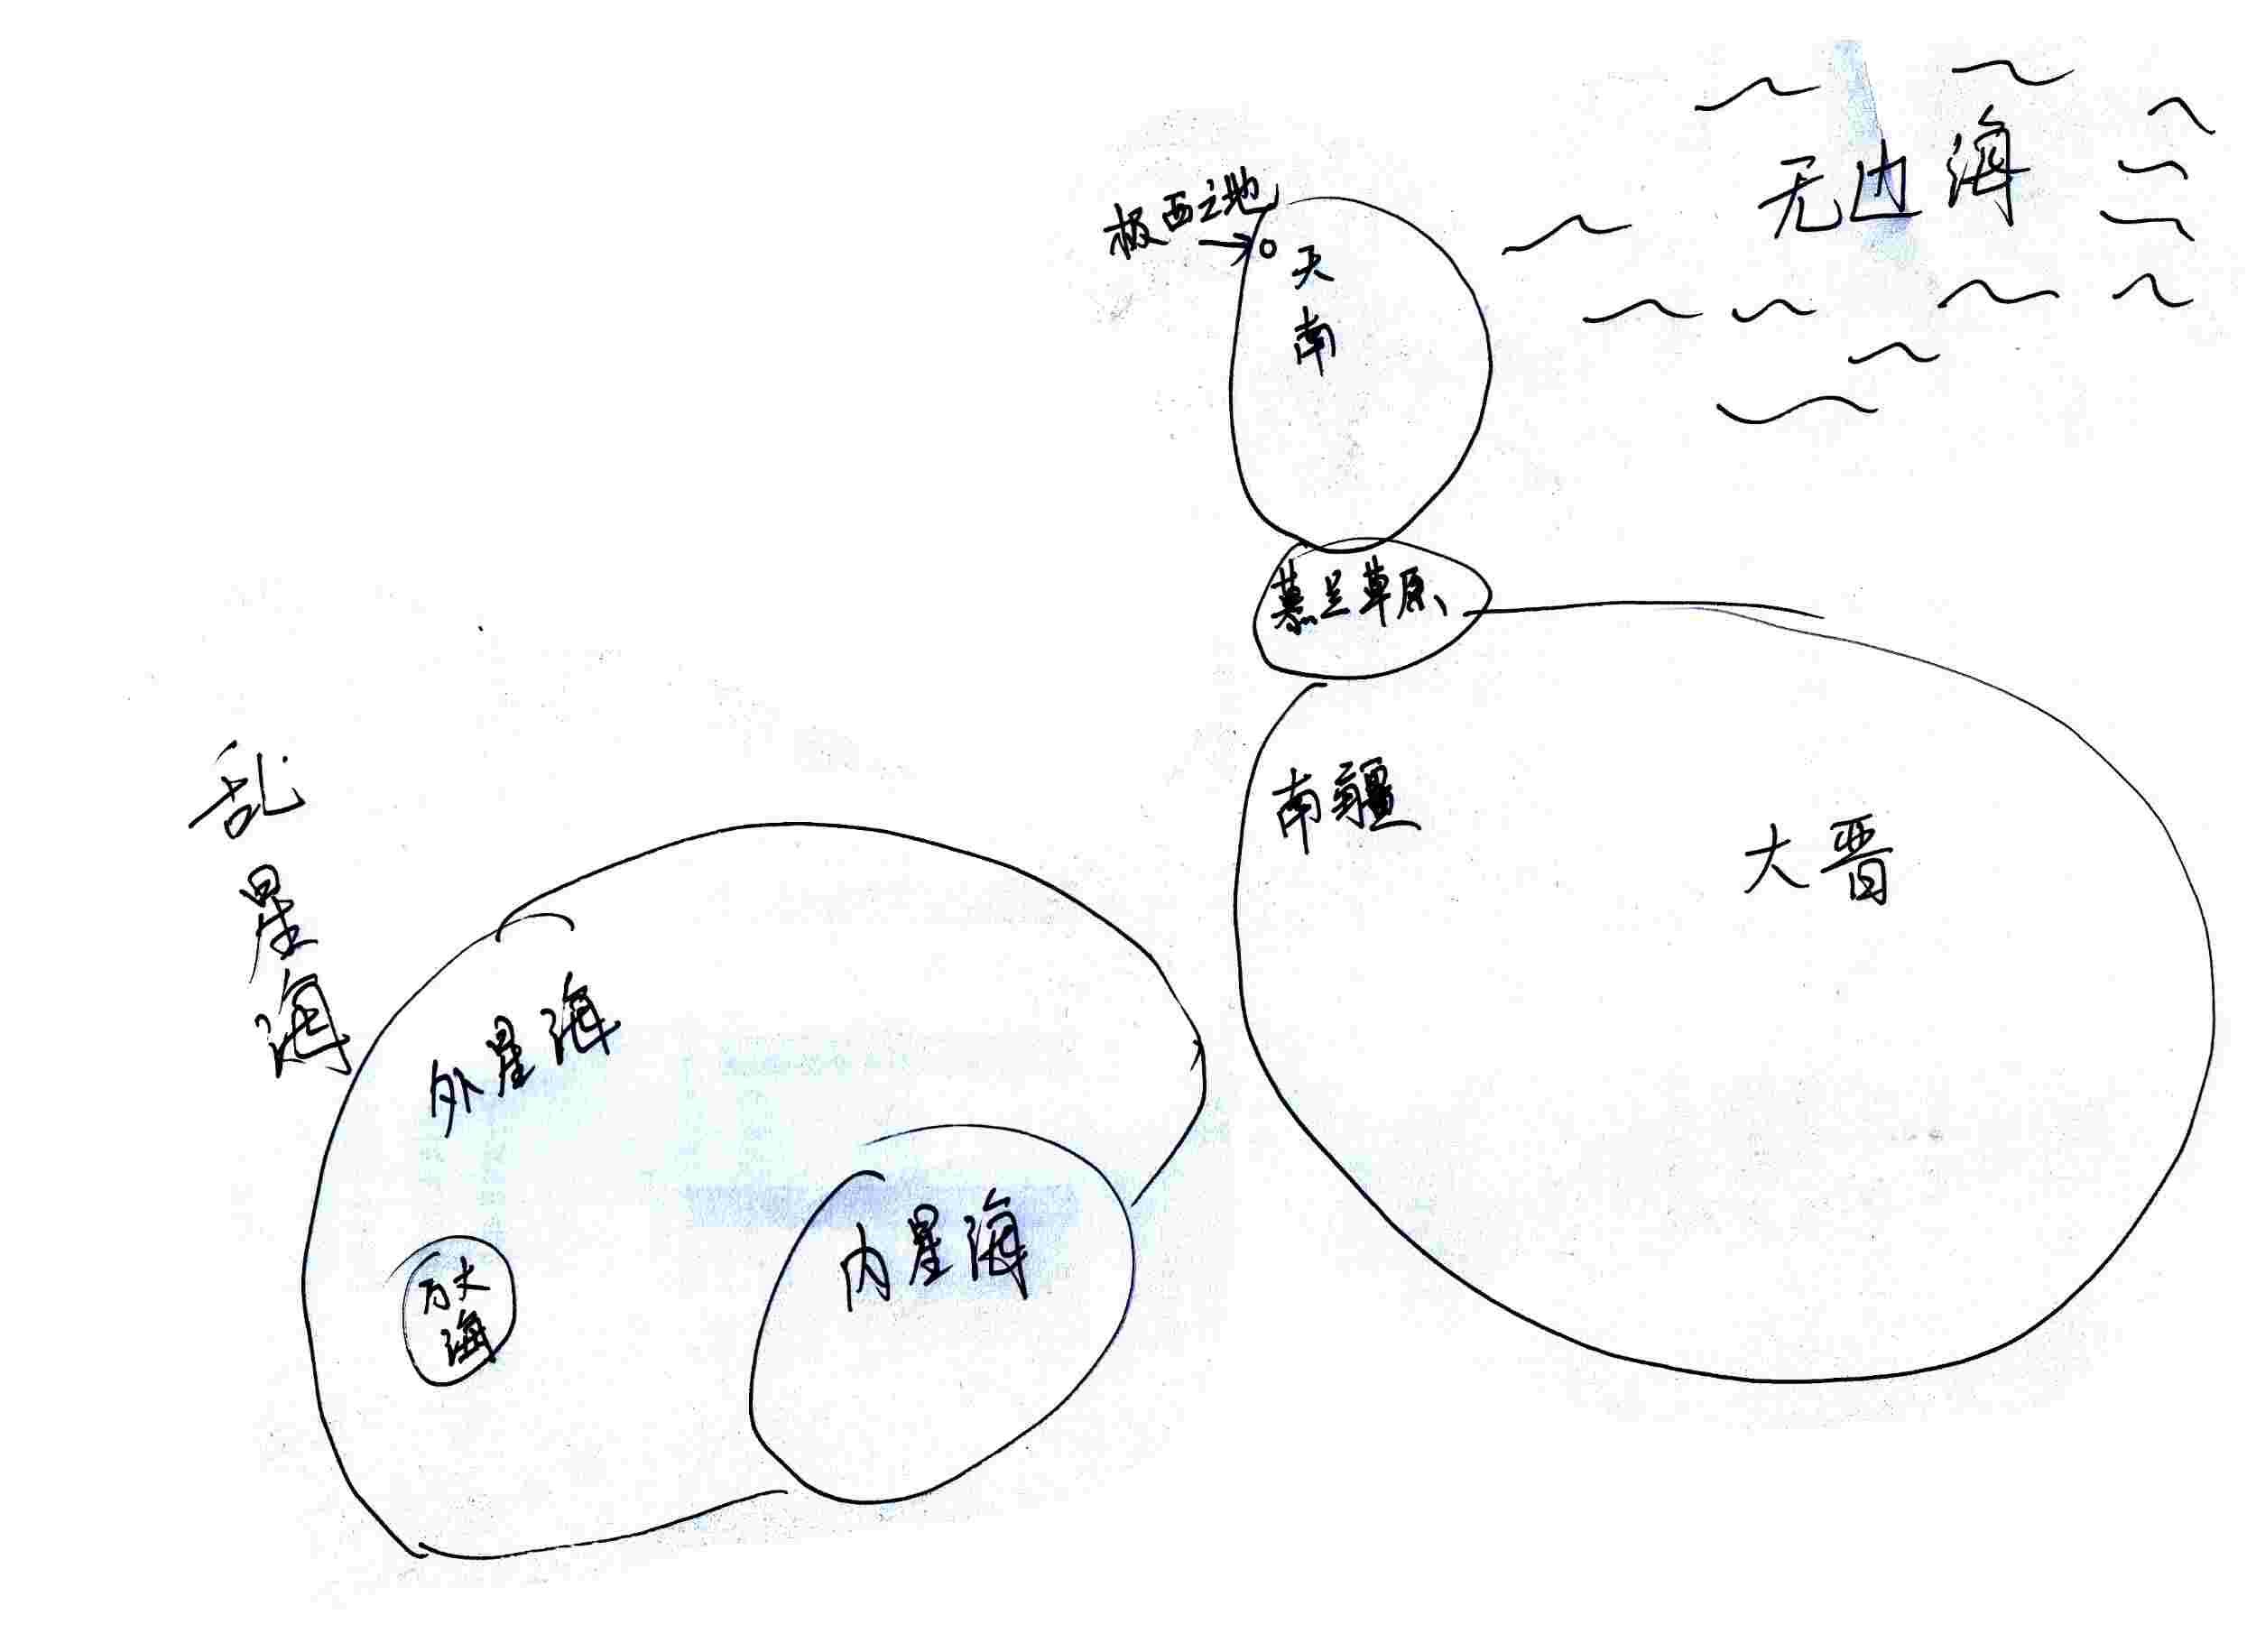 无边海
极西之地
天南
慕兰草原
南疆
大晋
乱星海
外星海
内星海